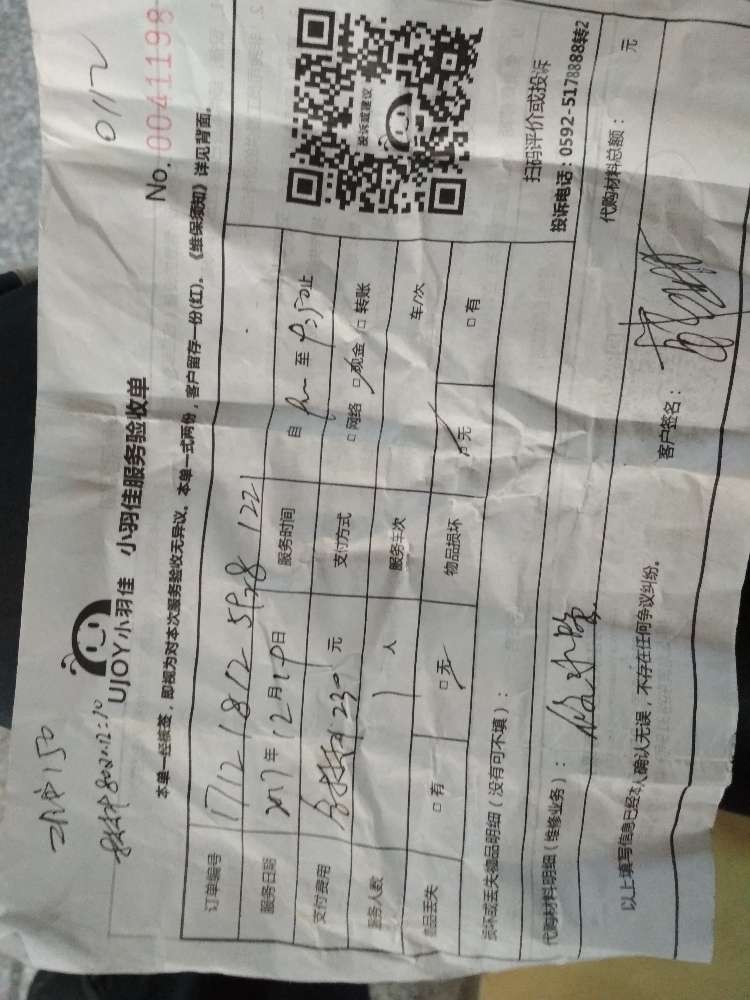 01112
工时150
UJOY小羽佳 小羽佳服务验收单
No. 0041198
本单一经核签，即视为对本次服务验收无异议。本单一式两份，客户留存一份(红)。《维保须知》详见背面。
订单编号 17121812
服务日期 2017年12月 日 服务时间 自 至 止
支付费用 230 元 支付方式 □网络 □现金 □转账
服务人数 1 人 服务车次 车/次
物品丢失 □有 □无 物品损坏 □无 □有
投诉或建议
扫码评价或投诉
投诉电话：0592-5178888转2
损坏或丢失物品明细（没有可不填）：
代购材料明细（维修业务）： 代购材料总额： 元
以上填写信息已经本人确认无误，不存在任何争议纠纷。 客户签名：